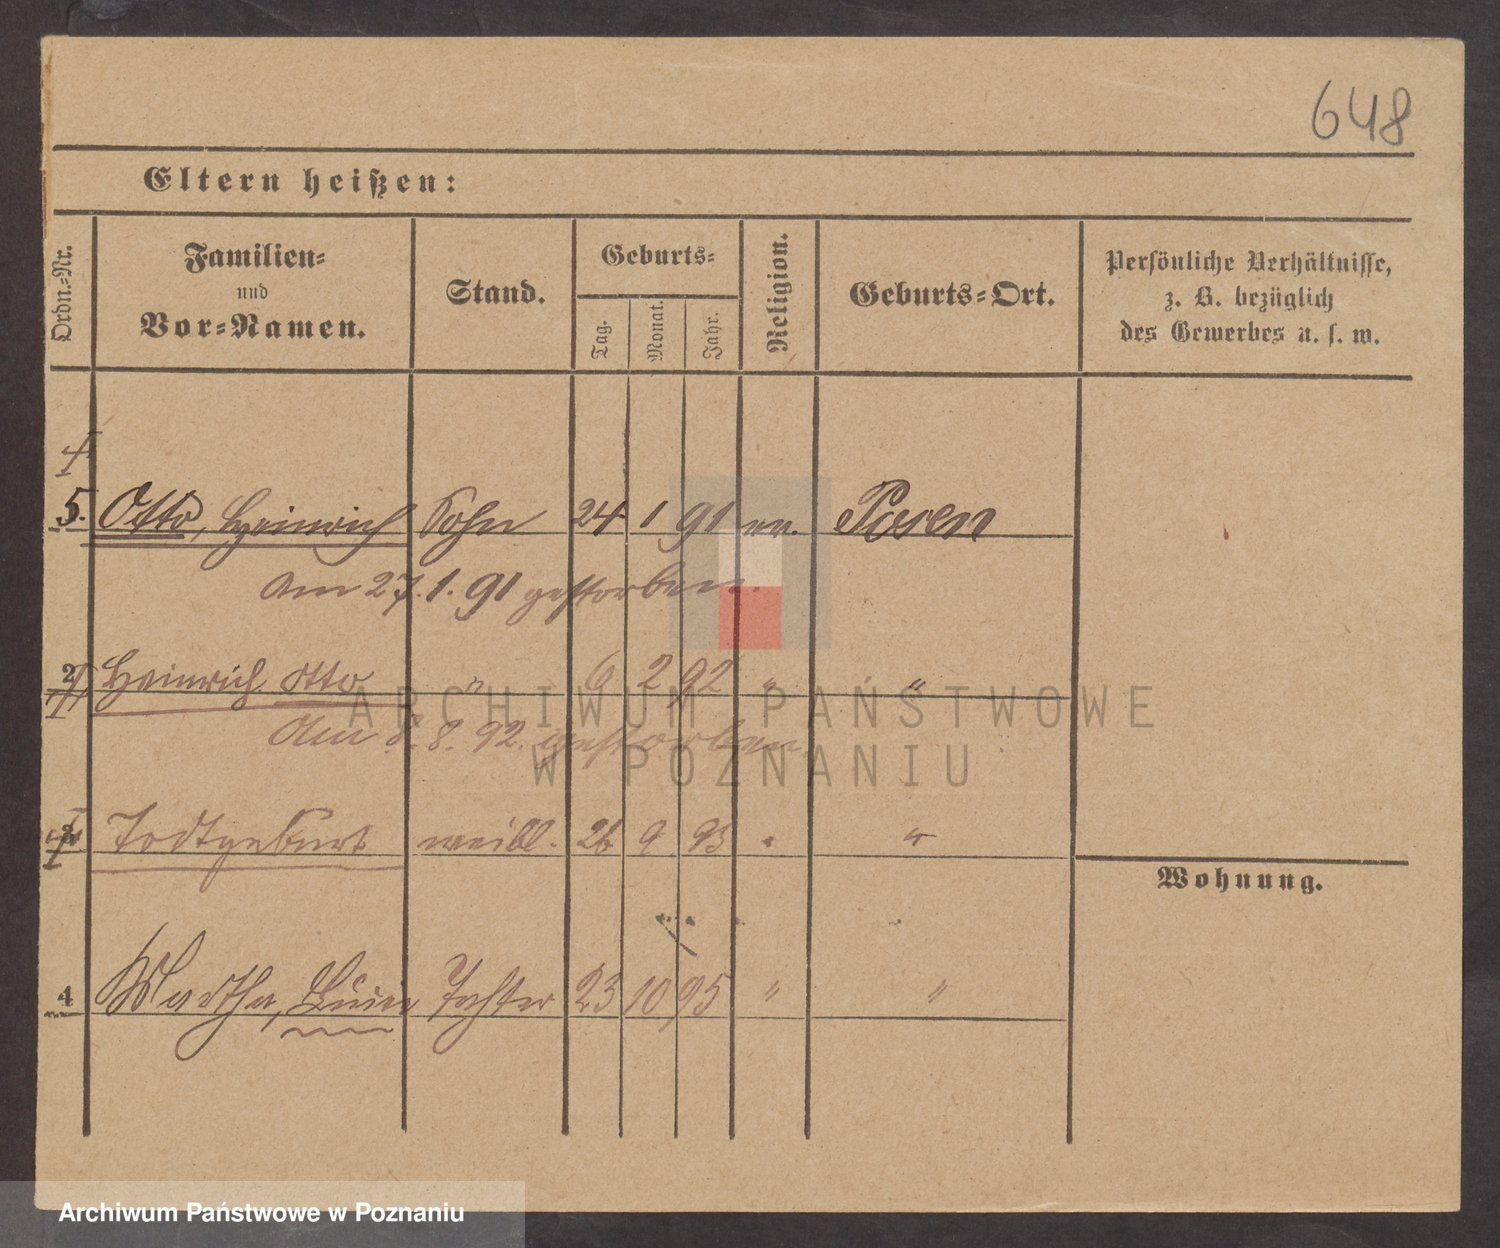 648
Eltern heißen:
Ordn.-Nr.
Familien-
und
Vor-Namen.
Stand.
Geburts-
Tag.
Monat.
Jahr.
Religion.
Geburts-Ort.
Persönliche Verhältnisse,
z. B. bezüglich
des Gewerbes u. s. w.
5. Otto, Heinrich Sohn 24 1 91 ev. Posen
Am 27.1.91 gestorben.
2 Heinrich Otto " 6 2 92 " "
Am 8.8.92. gestorben
Todtgeburt weibl. 26 9 93 " "
Wohnung.
4 Martha, Tochter 23 10 95 " "
ARCHIWUM PAŃSTWOWE
W POZNANIU
Archiwum Państwowe w Poznaniu